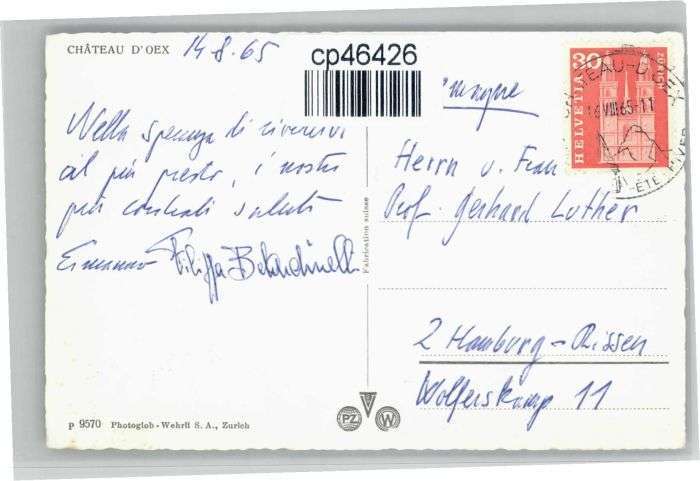 CHÂTEAU D'OEX 14-8.65
cp46426
Nella speranza di rivedervi
al più presto, i nostri
più cordiali saluti
Ermanno Filippa Belardinelli
Fabrication suisse
P 9570 Photoglob-Wehrli S. A., Zurich
PZ W
30
HELVETIA
CHATEAU-D'OEX
16.VIII.65-11
ÉTÉ HIVER
Herrn u. Frau
Prof. Gerhard Luther
2 Hamburg-Rissen
Wolferskamp 11